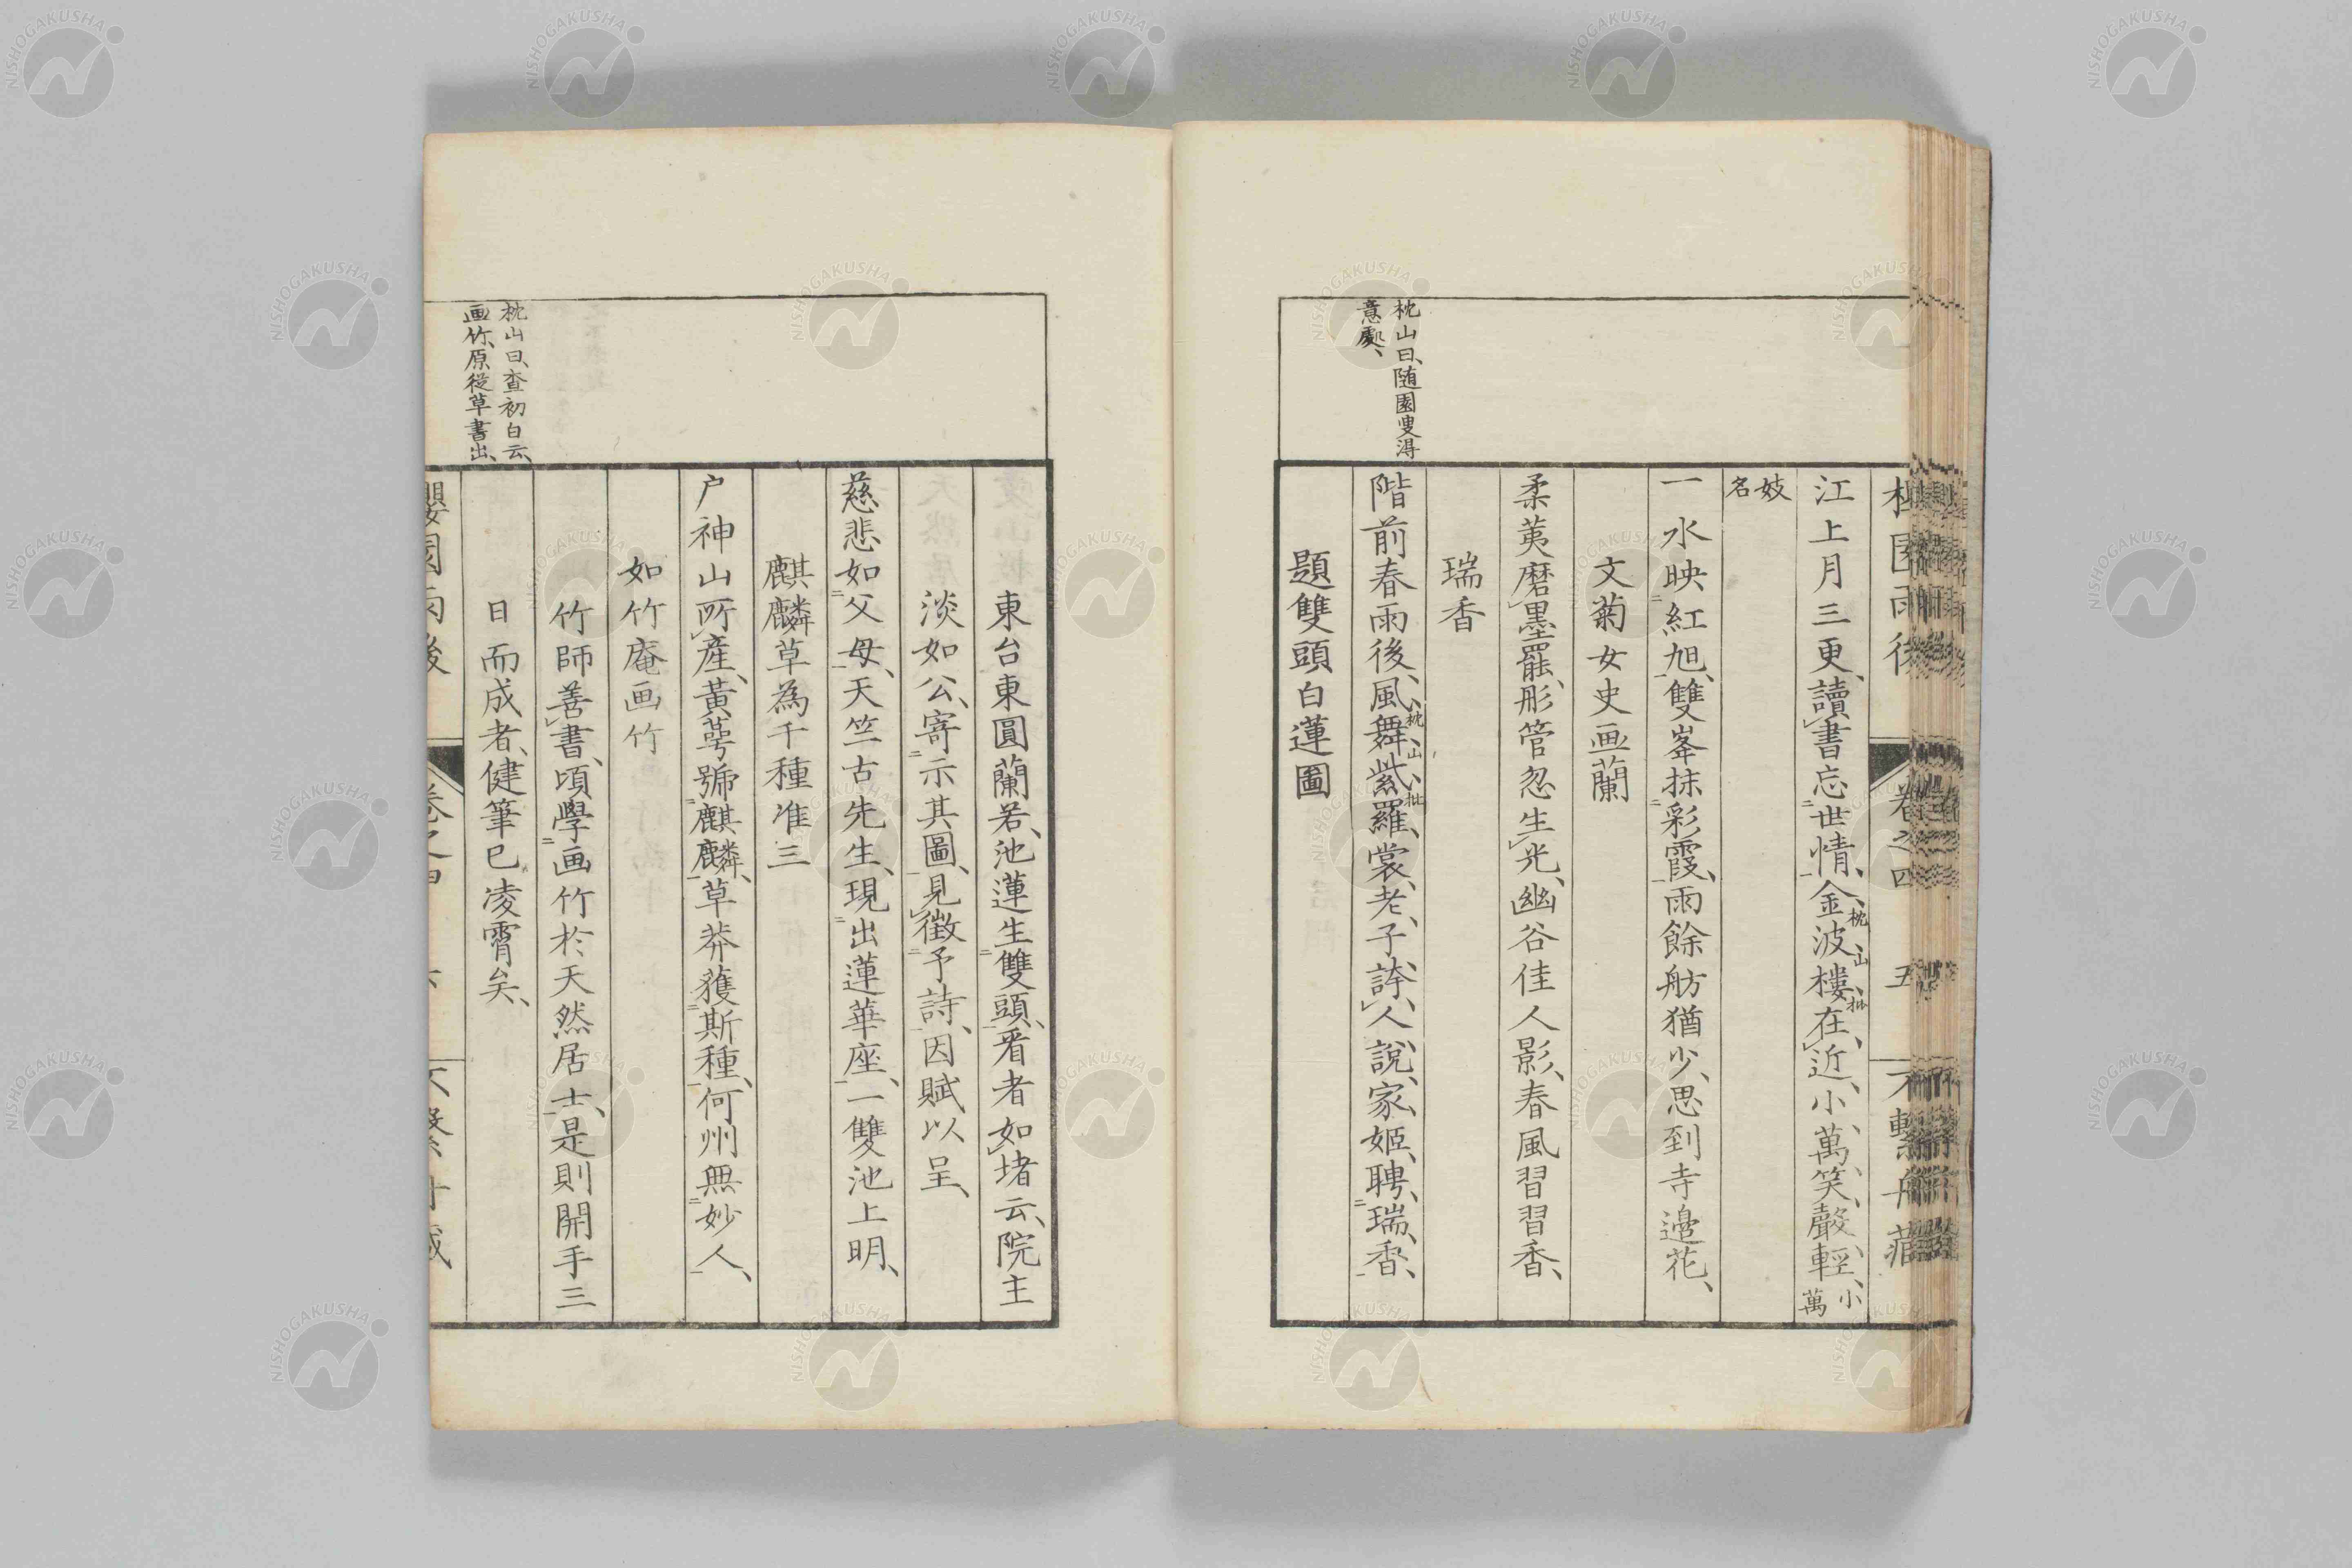 江上月三更、讀書忘世情、金波樓在近、小萬笑聲輕、小萬
妓名
一水映紅旭、雙峯抹彩霞、雨餘舫猶少、思到寺邉花、
文菊女史画蘭
柔荑磨墨罷、彤管忽生光、幽谷佳人影、春風習習香、
瑞香
階前春雨後、風舞紫羅裳、老子誇人說、家姬聘瑞香、
枕山批
枕山批
題雙頭白蓮圖
枕山曰、随園叟得
意處、
卷之四
五
東台東圓蘭若、池蓮生雙頭、看者如堵云、院主
淡如公、寄示其圖、見徵予詩、因賦以呈、
慈悲如父母、天竺古先生、現出蓮華座、一雙池上明、
麒麟草為千種准三
户神山所產、黃萼號麒麟、草莽獲斯種、何州無妙人、
如竹庵画竹
竹師善書、頃學画竹於天然居士、是則開手三
日而成者、健筆已凌霄矣、
枕山曰、查初白云、
画竹、原從草書出、